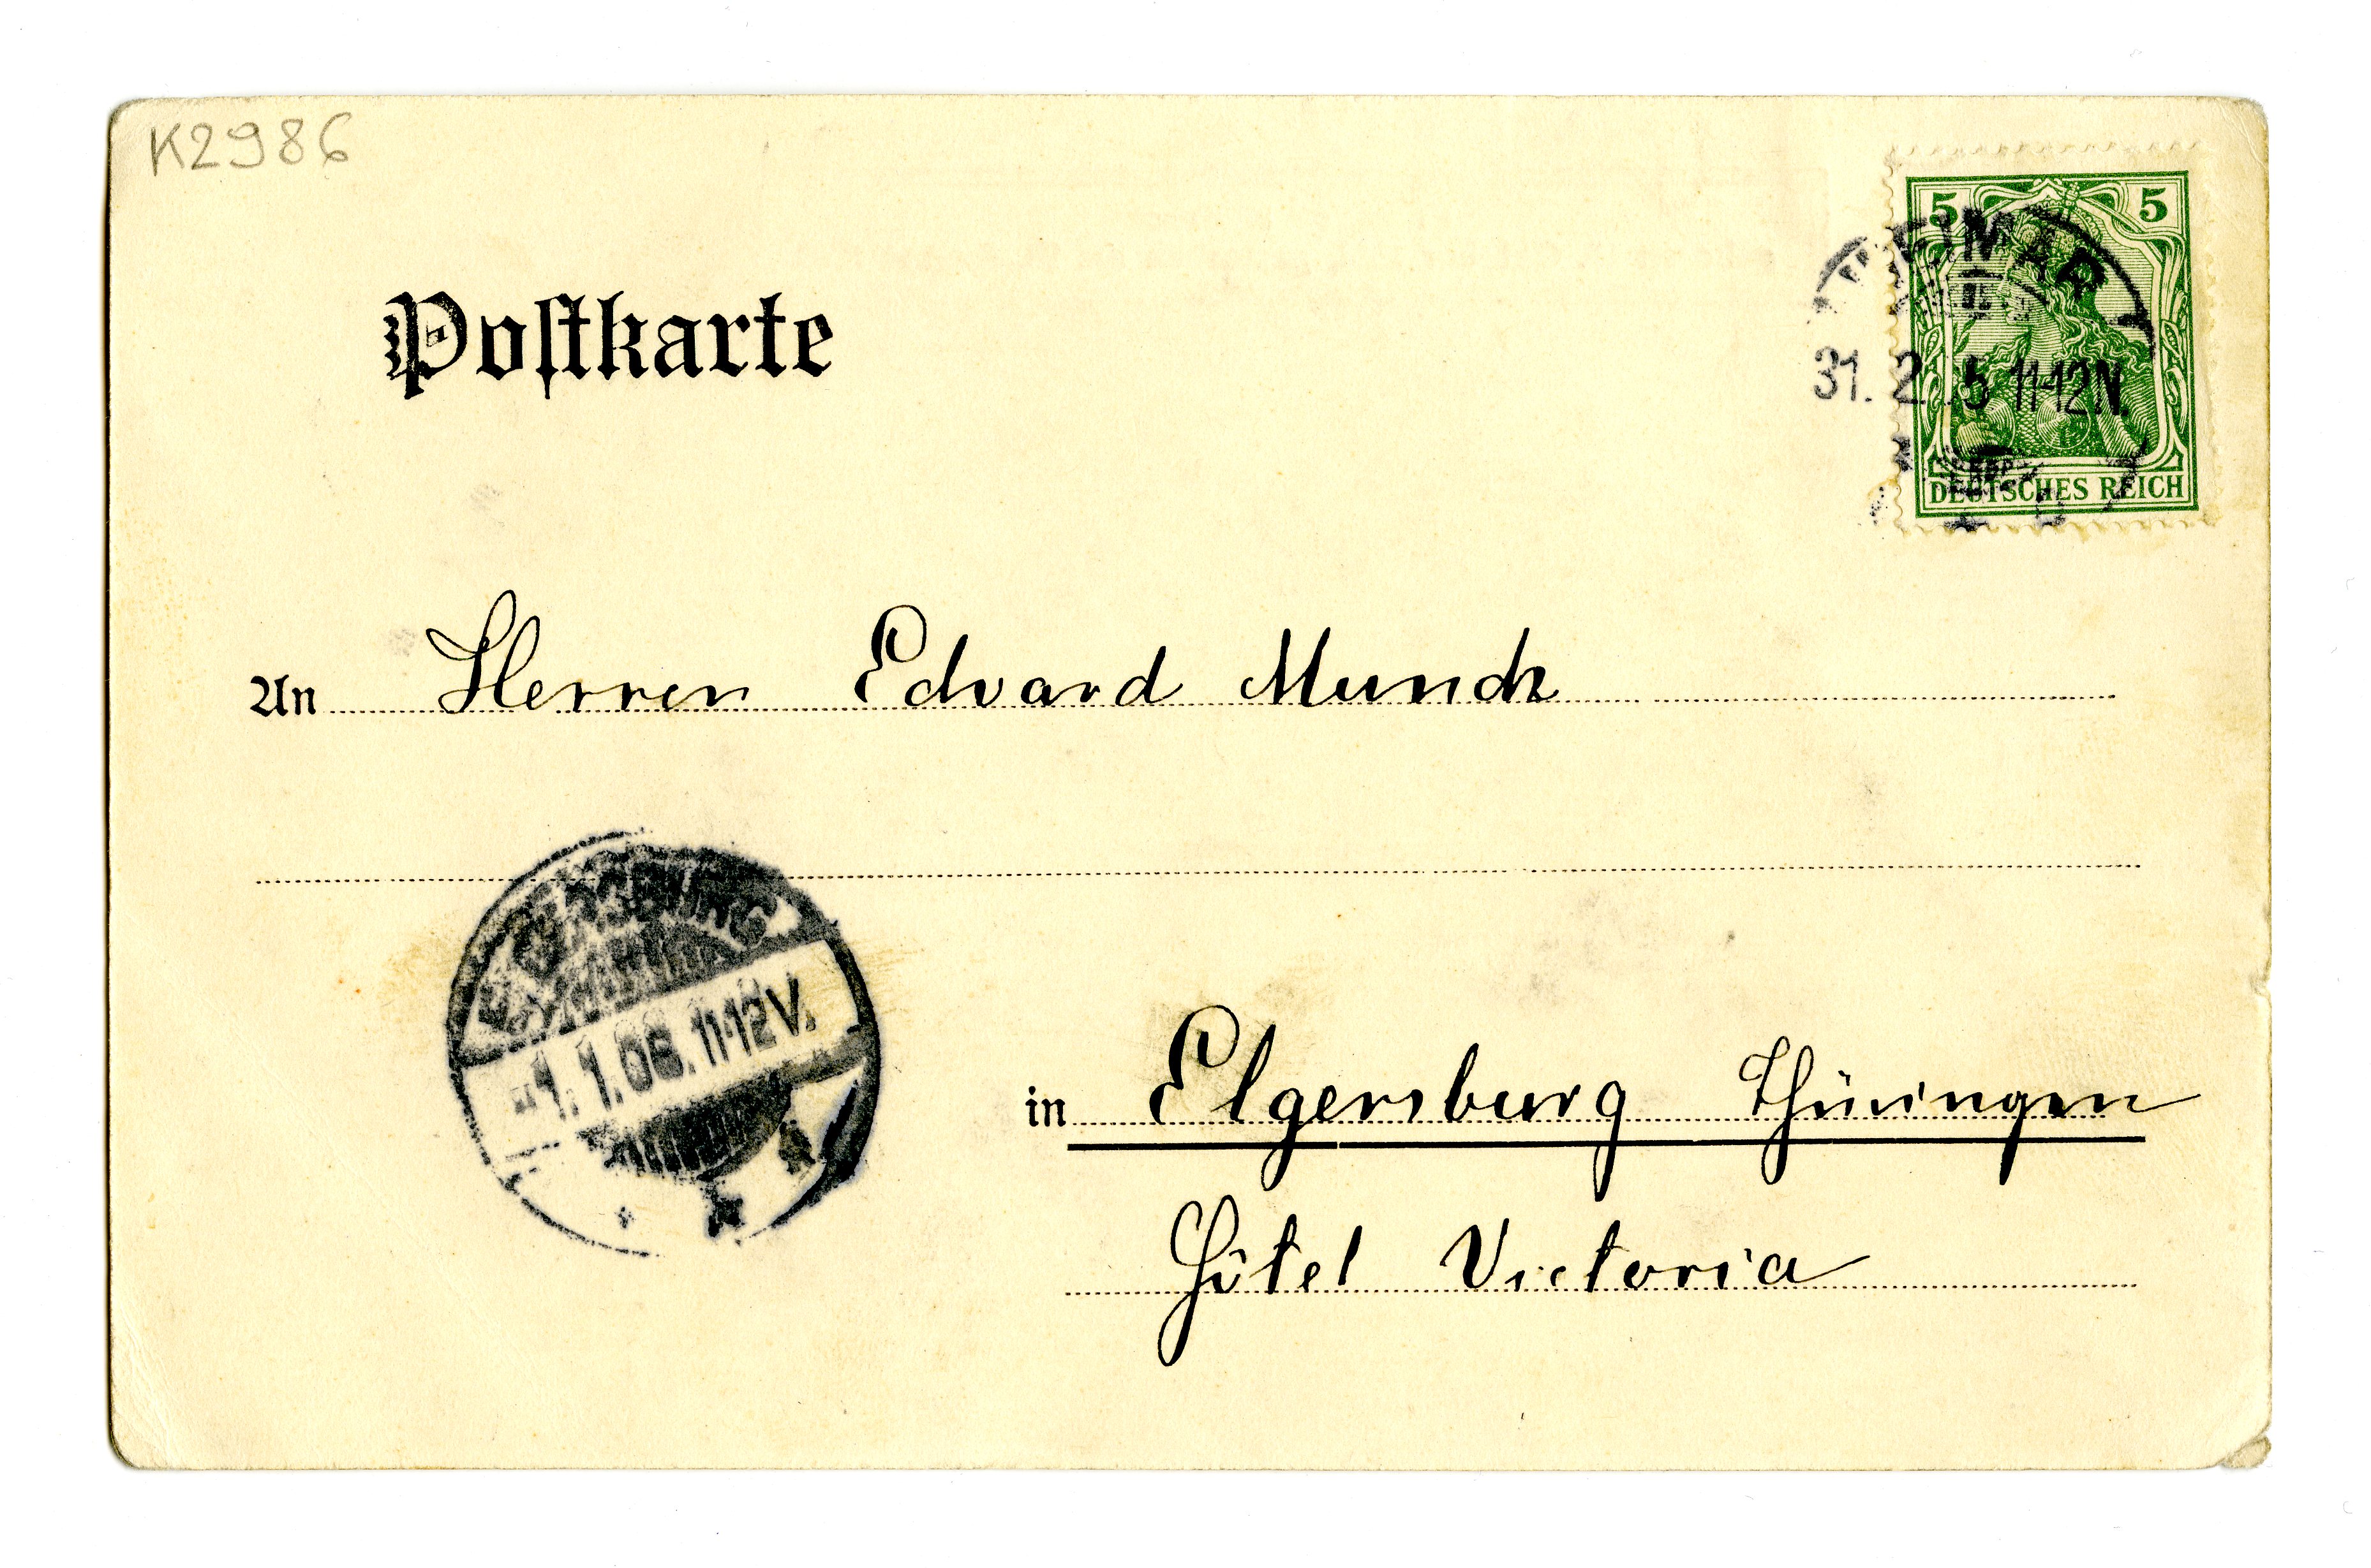 K2986
5 5
WEIMAR
31. 2 5 11-12N.
DEUTSCHES REICH
Poſtkarte
An Herren Edvard Munch
ELGERSBURG
1. 1. 06. 11-12V.
in Elgersburg Thüringen
Hôtel Victoria